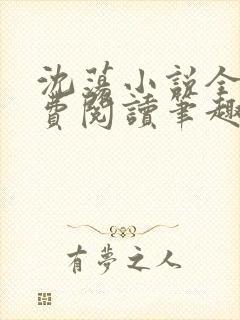 沈蕩小説全
費閱讀筆趣
有夢之人